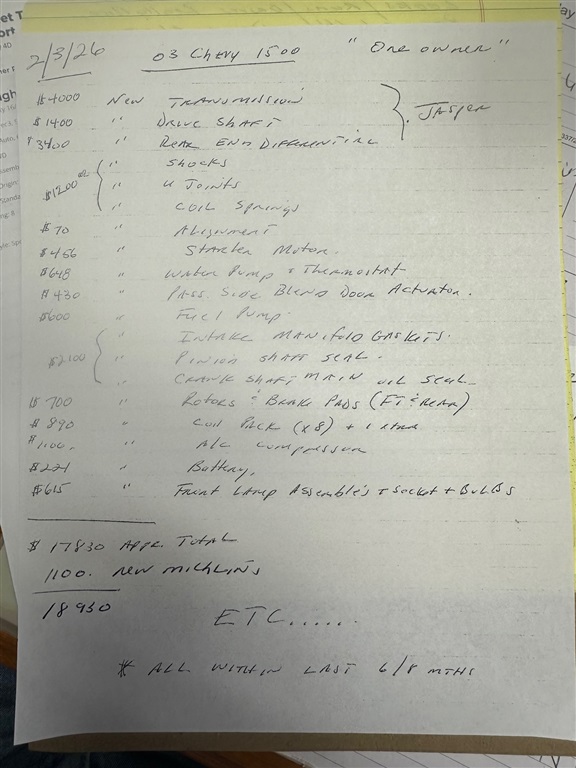 2/3/26 03 Chevy 1500 "One owner"
$4000 New Transmission
$1400 " Drive Shaft
$3400 " Rear End Differential
Jasper
" Shocks
$1200 00 " U Joints
" Coil Springs
$70 " Alignment
$456 " Starter Motor.
$648 " Water Pump & Thermostat
$430 " Pass. Side Blend Door Actuator.
$600 " Fuel Pump.
" Intake Manifold Gaskets.
$2100 " Pinion Shaft Seal.
" Crank Shaft Main Oil Seal
$700 " Rotors & Brake Pads (FT & Rear)
$890 " Coil Pack (x8) + 1 xtra
" A/C Compressor
$221 " Battery.
$615 " Front Lamp Assemble's + Socket + Bulbs
$17830 Appr. Total
1100. New Michlins
18930
ETC......
* All within last 6/8 mths